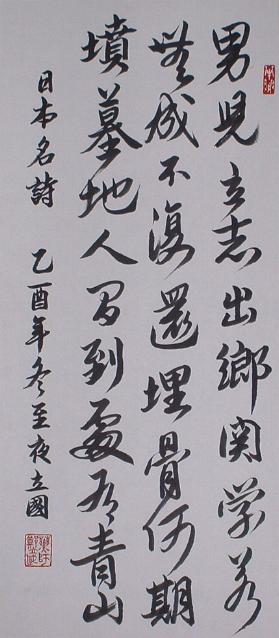 男児立志出郷関学若
無成不復還埋骨何期
墳墓地人間到処有青山
日本名詩 乙酉年冬至夜立國